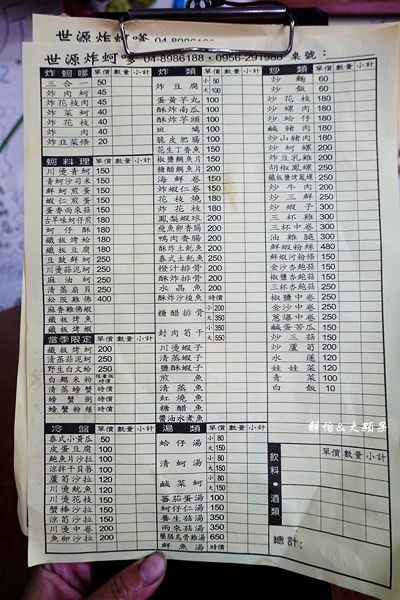 世源炸蚵嗲 04-8986188
世源炸蚵嗲 04-8986188 · 0956-291986 桌號：
炸蚵嗲 單價 數量 小計
三合一 50
炸肉蚵 45
炸花枝肉 45
炸菜蚵 40
炸花枝 40
炸肉 40
炸韭菜條 20
蚵料理 單價 數量 小計
川燙青蚵 150
青蚵沙司米 150
鮮蚵煎蛋 150
蝦仁煎蛋 150
蛋香雨來菇 150
古早味蚵仔煎 180
蚵仔酥 180
鐵板烤蚵 180
鐵板豆腐 180
豆鼓鮮蚵 200
川燙蒜泥蚵 200
麻油蚵 200
清蒸扇貝 250
松阪雞佛 400
麻香雞佛蝦
鐵板烤魚
鐵板烤蝦
當季限定 單價 數量 小計
鐵板烤蟳 200
清蒸蒜泥蟳 200
野生白文蛤 250
白鯧米粉 時價
清蒸螃蟹 時價
螃蟹粥 時價
螃蟹粉絲 時價
冷盤 單價 數量 小計
泰式小黃瓜 50
皮蛋豆腐 50
鮑魚片沙拉 100
涼拌干貝唇 100
蘆筍沙拉 120
川燙魷魚 120
川燙花枝 150
蟹棒沙拉 150
涼筍沙拉 150
川燙中卷 200
魚卵沙拉 200
炸類 單價 數量 小計
炸豆腐 小 50 大 100
蛋黃芋丸 100
酥炸南瓜 100
酥炸芋頭 100
斑鳩 100
脆皮肥腸 100
花生丁香魚 150
椒鹽鯛魚片 150
糖醋鯛魚片 150
海鮮卷 150
炸蝦仁卷 150
花枝燒 180
炸花枝 180
鳳梨蝦球 200
飛魚卵香腸 200
鴨肉香腸 200
酥炸土魠魚 200
泰式土魠魚 200
橙汁排骨 200
酥炸排骨 200
水晶魚 200
酥炸沙梭魚 時價
糖醋排骨 小 200 大 350
封肉筍干 小 350 大 550
川燙蝦子
清蒸蝦子
鹽酥蝦子
煎魚
清蒸魚
紅燒魚
糖醋魚
醬油水煮魚
湯類 單價 數量 小計
蛤仔湯 小 80 大 150
清蚵湯 小 80 大 150
鹹菜蚵 小 80 大 150
蕃茄蛋湯 100
蚵仔仁湯 150
養生菇湯 350
雨來菇湯 350
藥膳烏骨雞湯 650
鮮魚湯 時價
炒類 單價 數量 小計
炒麵 60
炒飯 60
炒花枝 180
炒肉魷 180
炒蛤仔 180
鹹豬肉 180
炒山豬肉 180
炒蚵螺 200
炸豆乳雞 200
胡椒鳳螺 200
鐵板鹽烤鳳螺 200
炒牛肉 200
炒三鮮 250
炒鳳螺 250
三杯雞 300
三杯中卷 300
油雞腿 300
鮮蝦粉絲 480
鮮蝦河粉條 150
金沙杏鮑菇 150
椒鹽杏鮑菇 150
三杯杏鮑菇 150
椒鹽中卷 250
金沙中卷 250
蔥爆中卷 250
鹹蛋苦瓜 150
炒三菇 150
炒蘆筍 200
水蓮 120
娃娃菜 120
青菜 100
白飯 10
飲料·酒類 單價 數量 小計
總計：
靜怡&大顆呆